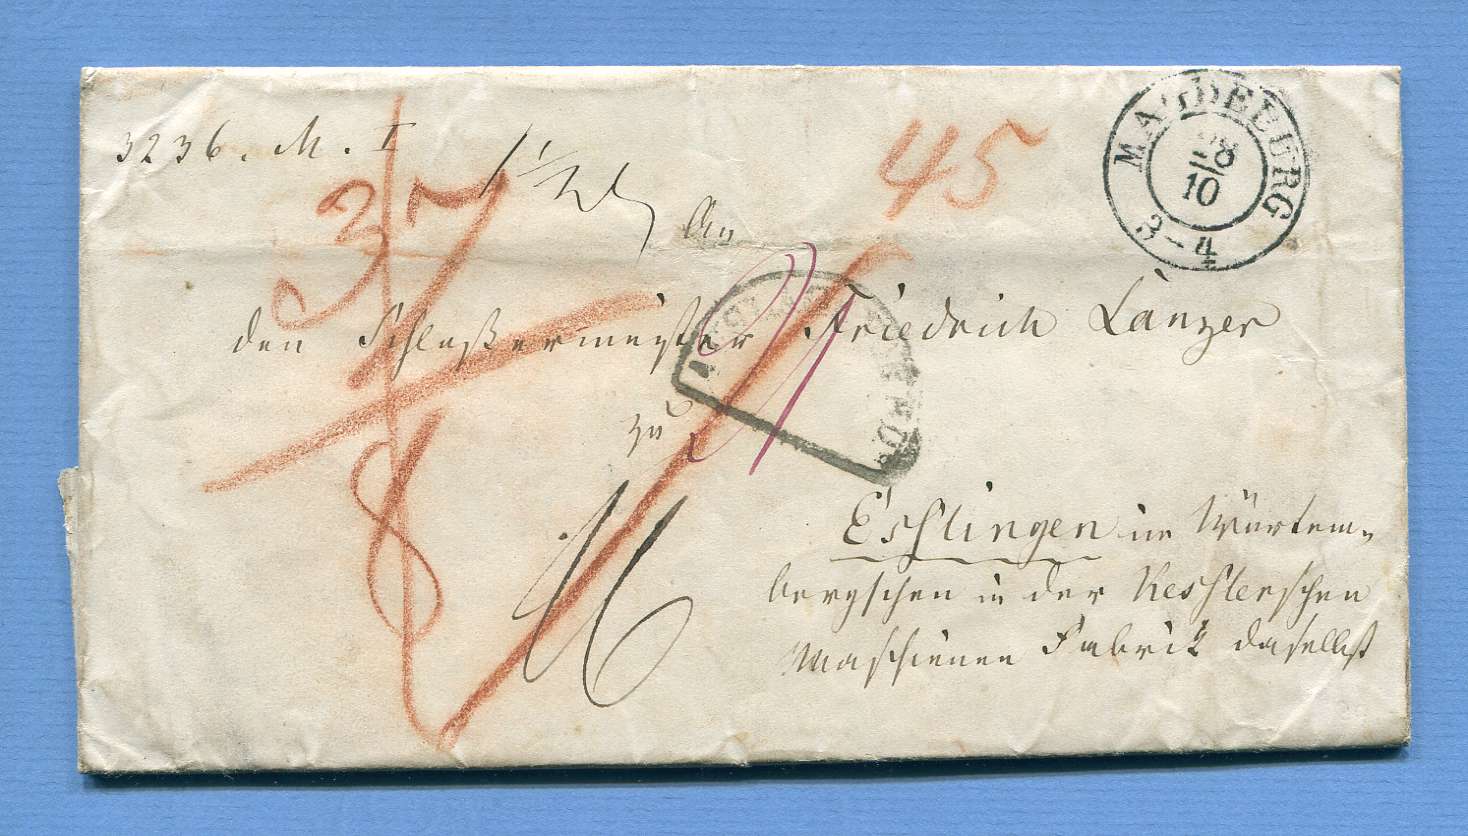 3236. M. I
37
45
MAGDEBURG
28
10
3-4
An
den Schloßermeister Friedrich Lanzer
zu
8
16
Esslingen im Würtem-
bergschen in der Kesslerschen
Maschienen Fabrik daselbst